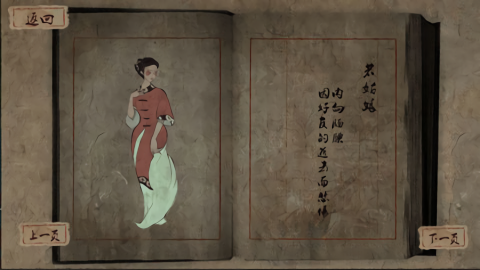 返回
内向腼腆
因好友的逝去而悲痛
上一页
下一页